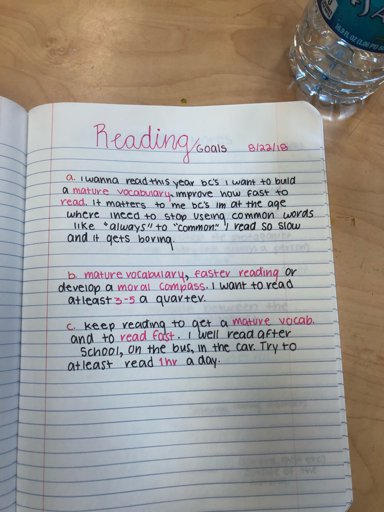 Reading Goals 8/22/18
a. I wanna read this year bc's I want to build
a mature vocabulary, improve how fast to
read. It matters to me bc's im at the age
where I need to stop useing common words
like "always" to "common." I read so slow
and it gets boring.
b. mature vocabulary, faster reading or
develop a moral compass. I want to read
atleast 3-5 a quarter.
c. keep reading to get a mature vocab.
and to read fast. I well read after
School, on the bus, in the car. Try to
atleast read 1hr a day.